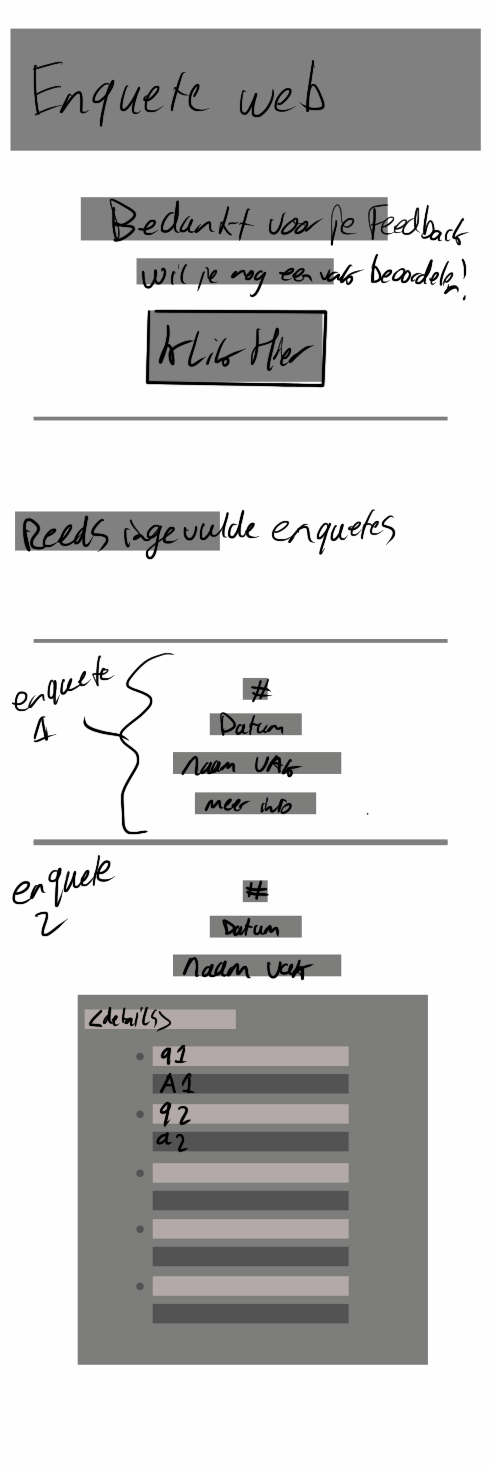 Enquete web
Bedankt voor je Feedback
wil je nog een vak beoordelen!
klik Hier
Reeds ingevulde enquetes
enquete
1
#
Datum
naam vak
meer info
enquete
2
#
Datum
naam vak
<details>
q1
A1
q2
a2